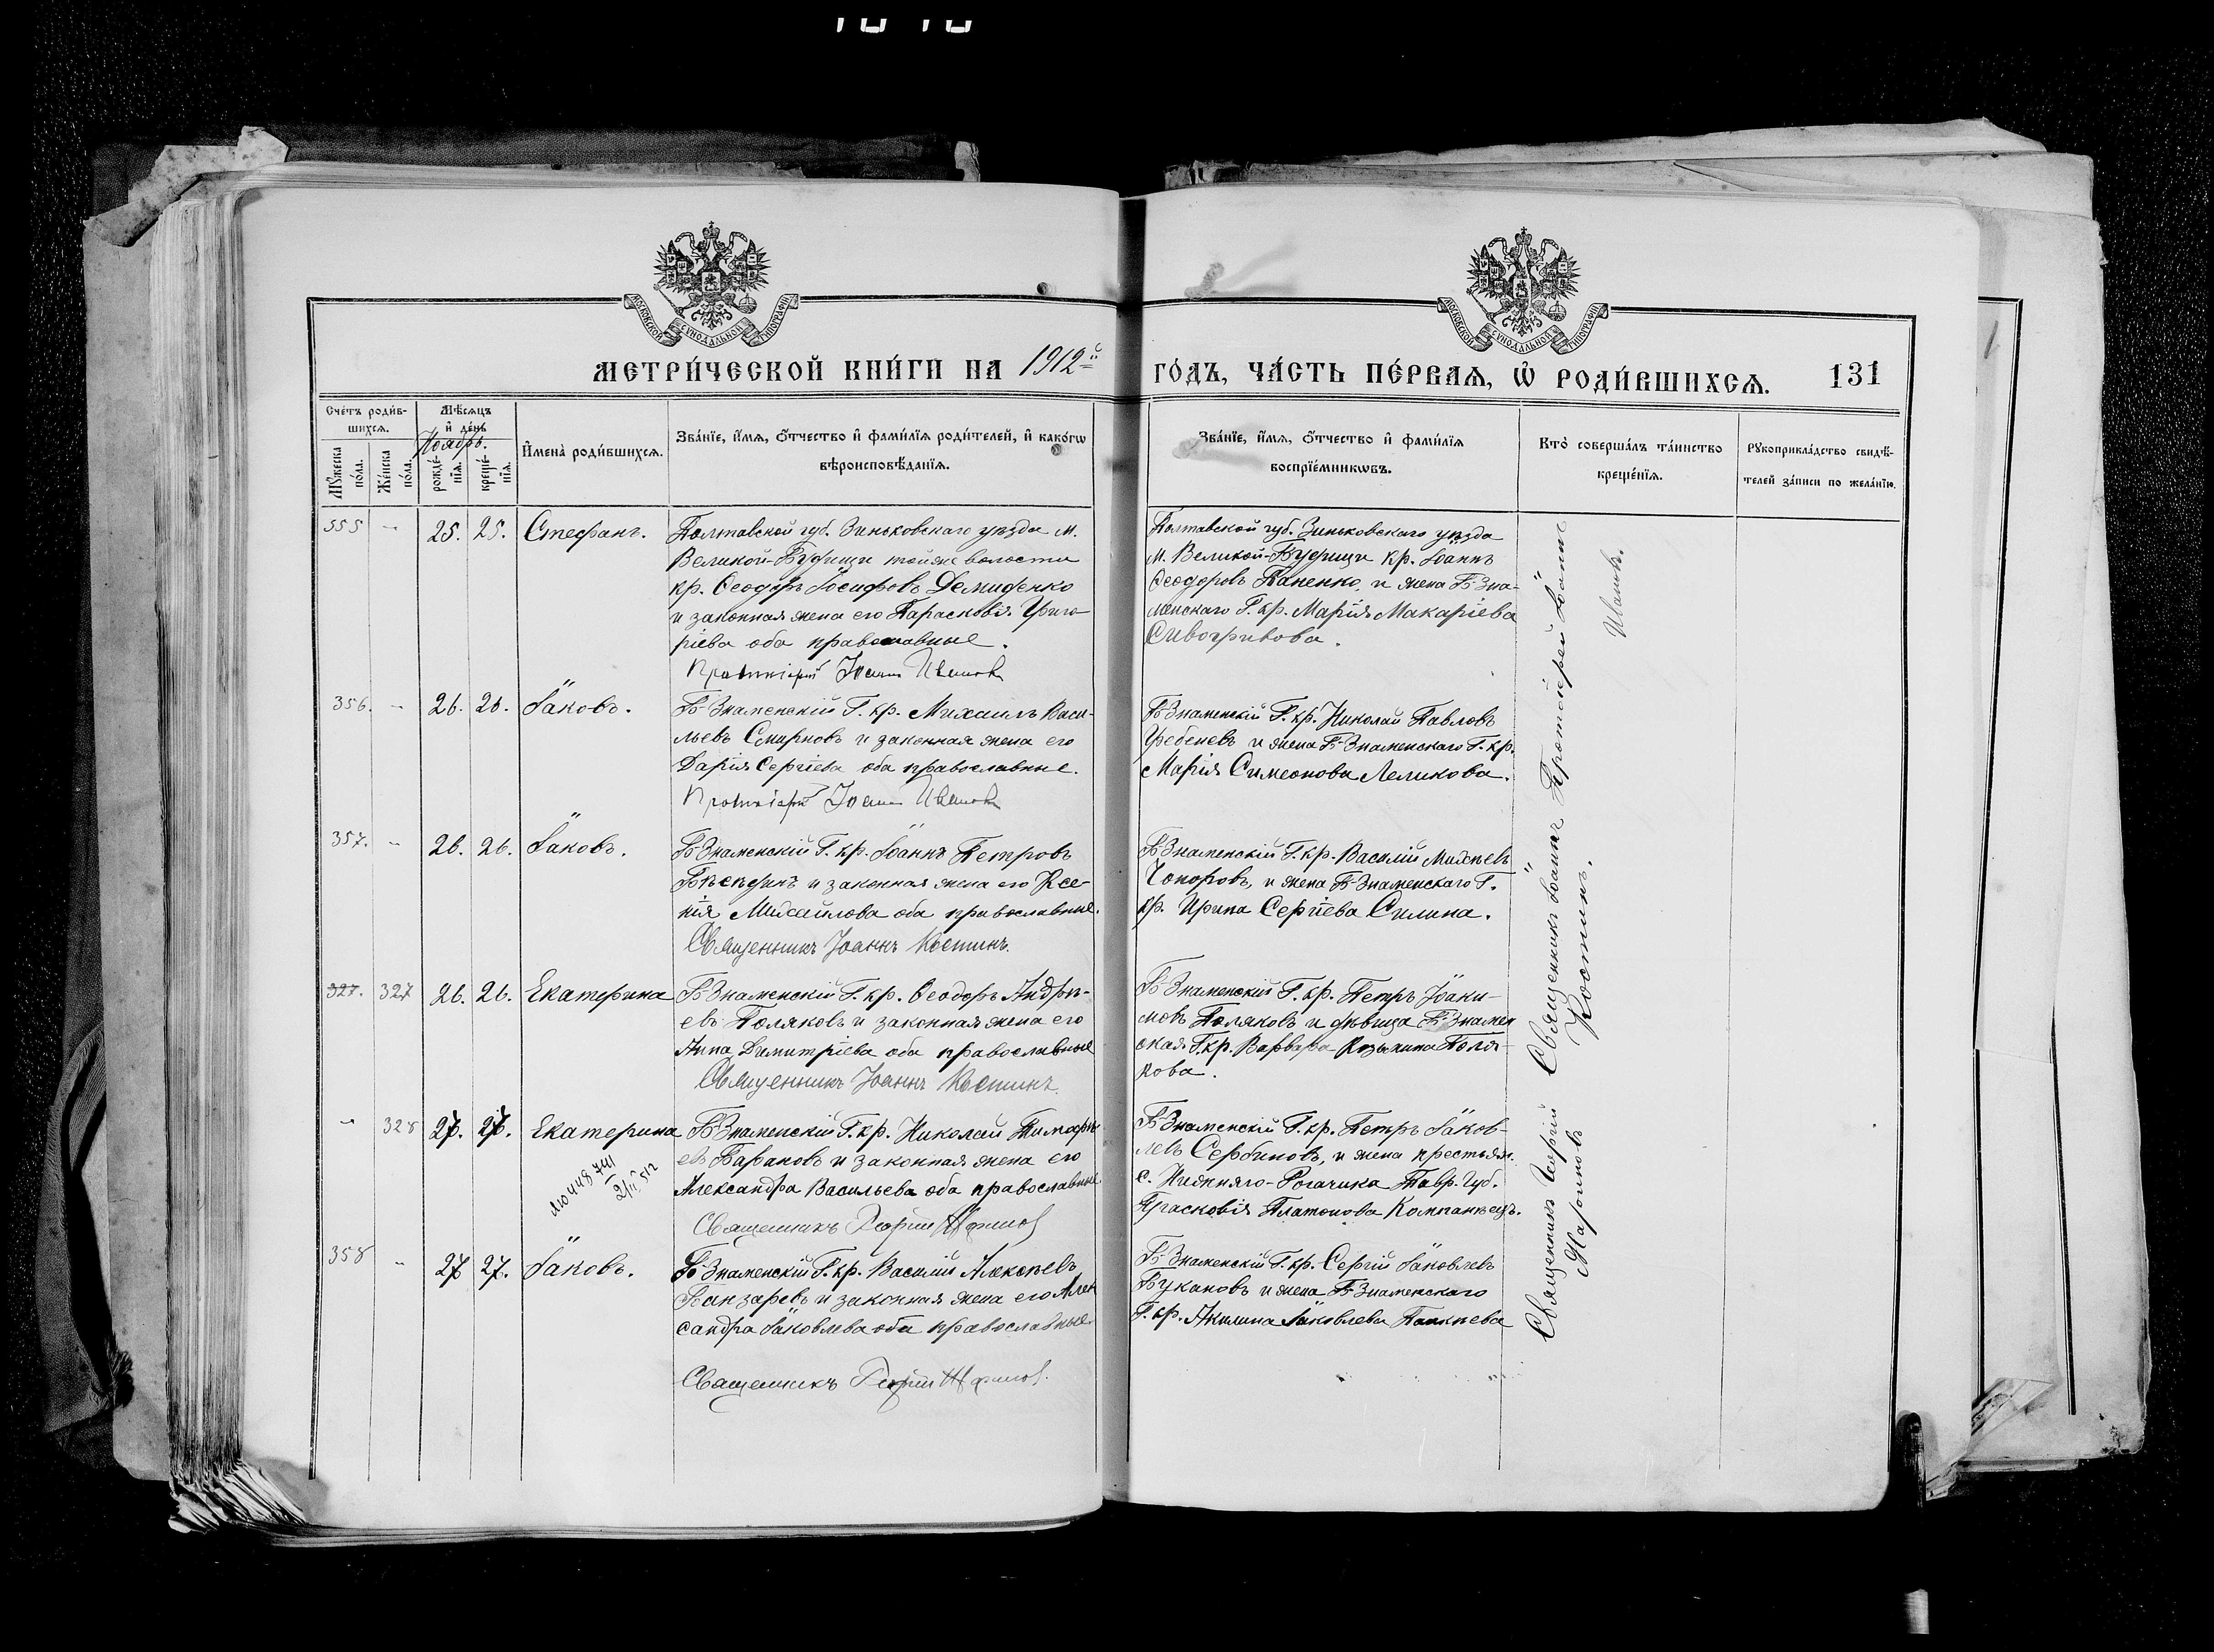 МОСКОВСКОЙ СУНОДАЛЬНОЙ ТИПОГРАФІИ
МОСКОВСКОЙ СУНОДАЛЬНОЙ ТИПОГРАФІИ
МЕТРИ́ЧЕСКОЙ КНИ́ГИ НА 1912й
ГО́ДЪ, ЧА́СТЬ ПЕ́РВАЯ, Ѡ҆ РОДИ́ВШИХСѦ. 131
Сче́тъ роди́в-
шихсѧ.
Мѣ́сѧцъ
и҆ де́нь
Ноябрь.
Му́жеска по́ла.
Же́нска по́ла.
рожде́-
нїѧ.
креще́-
нїѧ.
И҆мена̀ роди́вшихсѧ.
Зва́нїе, и҆́мѧ, ѻ҆́тчество и҆ фами́лїѧ роди́телей, и҆ како́гѡ
вѣроисповѣ́данїѧ.
Зва́нїе, и҆́мѧ, ѻ҆́тчество и҆ фами́лїѧ
воспрїе́мникѡвъ.
Кто̀ соверша́лъ та́инство
креще́нїѧ.
Рꙋкоприкла́дство свидѣ́-
телей за́писи по жела́нїю.
355 - 25. 25. Стефанъ.
Полтавской губ. Зиньковскаго уѣзда м.
Великой-Будищи тойже волости
кр. Ѳеодоръ Іосифовъ Демиденко
и законная жена его Парасковія Григо
ріева оба православные.
Протоіерей Іоаннъ Ивановъ
Полтавской губ. Зиньковскаго уѣзда
м. Великой-Будищи кр. Іоаннъ
Ѳеодоровъ Паненко, и жена Б-Зна-
менскаго Г. кр. Марія Макаріева
Сивогривова.
356. - 26. 26. Іаковъ.
Б-Знаменскій Г. кр. Михаилъ Васи-
льевъ Смирновъ и законная жена его
Дарія Сергіева оба православные.
Протоіерей Іоаннъ Ивановъ
Б-Знаменскій Г. кр. Николай Павловъ
Гребеневъ и жена Б-Знаменскаго Г. кр.
Марія Симеонова Леликова.
357. - 26. 26. Іаковъ.
Б-Знаменскій Г. кр. Іоаннъ Петровъ
и законная жена его Ксе-
нія Михаилова оба православные.
Священникъ Іоаннъ Костинъ.
Б-Знаменскій Г. кр. Василій
Чопоровъ, и жена Б-Знаменскаго Г.
кр. Ирина Сергіева Силина.
327 26. 26. Екатерина
Б-Знаменскій Г. кр. Ѳеодоръ Андрѣ-
евъ Поляковъ и законная жена его
Анна Димитріева оба православные
Священникъ Іоаннъ Костинъ
Б-Знаменскій Г. кр. Петръ Іоаки-
мовъ Поляковъ и дѣвица Б-Знамен
ская Г. кр. Варвара Козьмина Поля-
кова.
- 328 27. 27. Екатерина
Б-Знаменскій Г. кр. Николай Тимофѣ
евъ Барановъ и законная жена его
Александра Васильева оба православные
Священникъ Георгій
Б-Знаменскій Г. кр. Петръ Іаков-
левъ Сербиновъ, и жена крестьян.
с. Нижняго-Рогачика Тавр. Губ.
Прасковія Платонова Компанѣецъ.
358 - 27 27. Іаковъ.
Б-Знаменскій Г. кр. Василій Алексѣевъ
Банзаревъ и законная жена его Алек
сандра Іаковлева оба православные
Священникъ Георгій
Б-Знаменскій Г. кр. Сергій Іаковлевъ
Букановъ и жена Б-Знаменскаго
Г. кр. Акилина Іаковлева
Протоіерей Іоаннъ
Ивановъ.
Священникъ Іоаннъ
Костинъ.
Священникъ Георгій